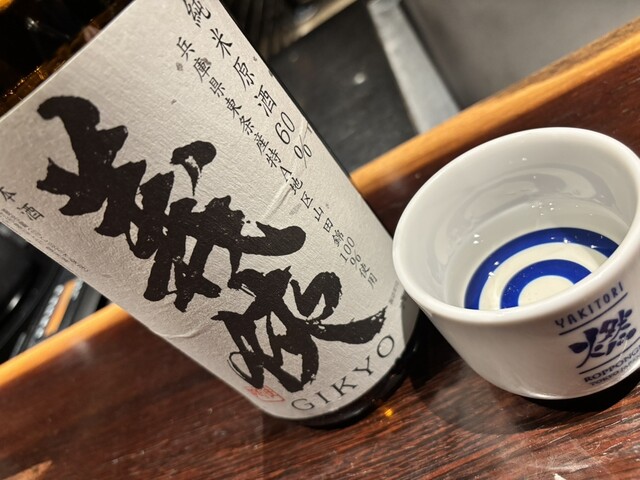 純米原酒60%
兵庫県東条産特A地区山田錦100%使用
義侠
GIKYO
本酒
YAKITORI
ROPPONGI